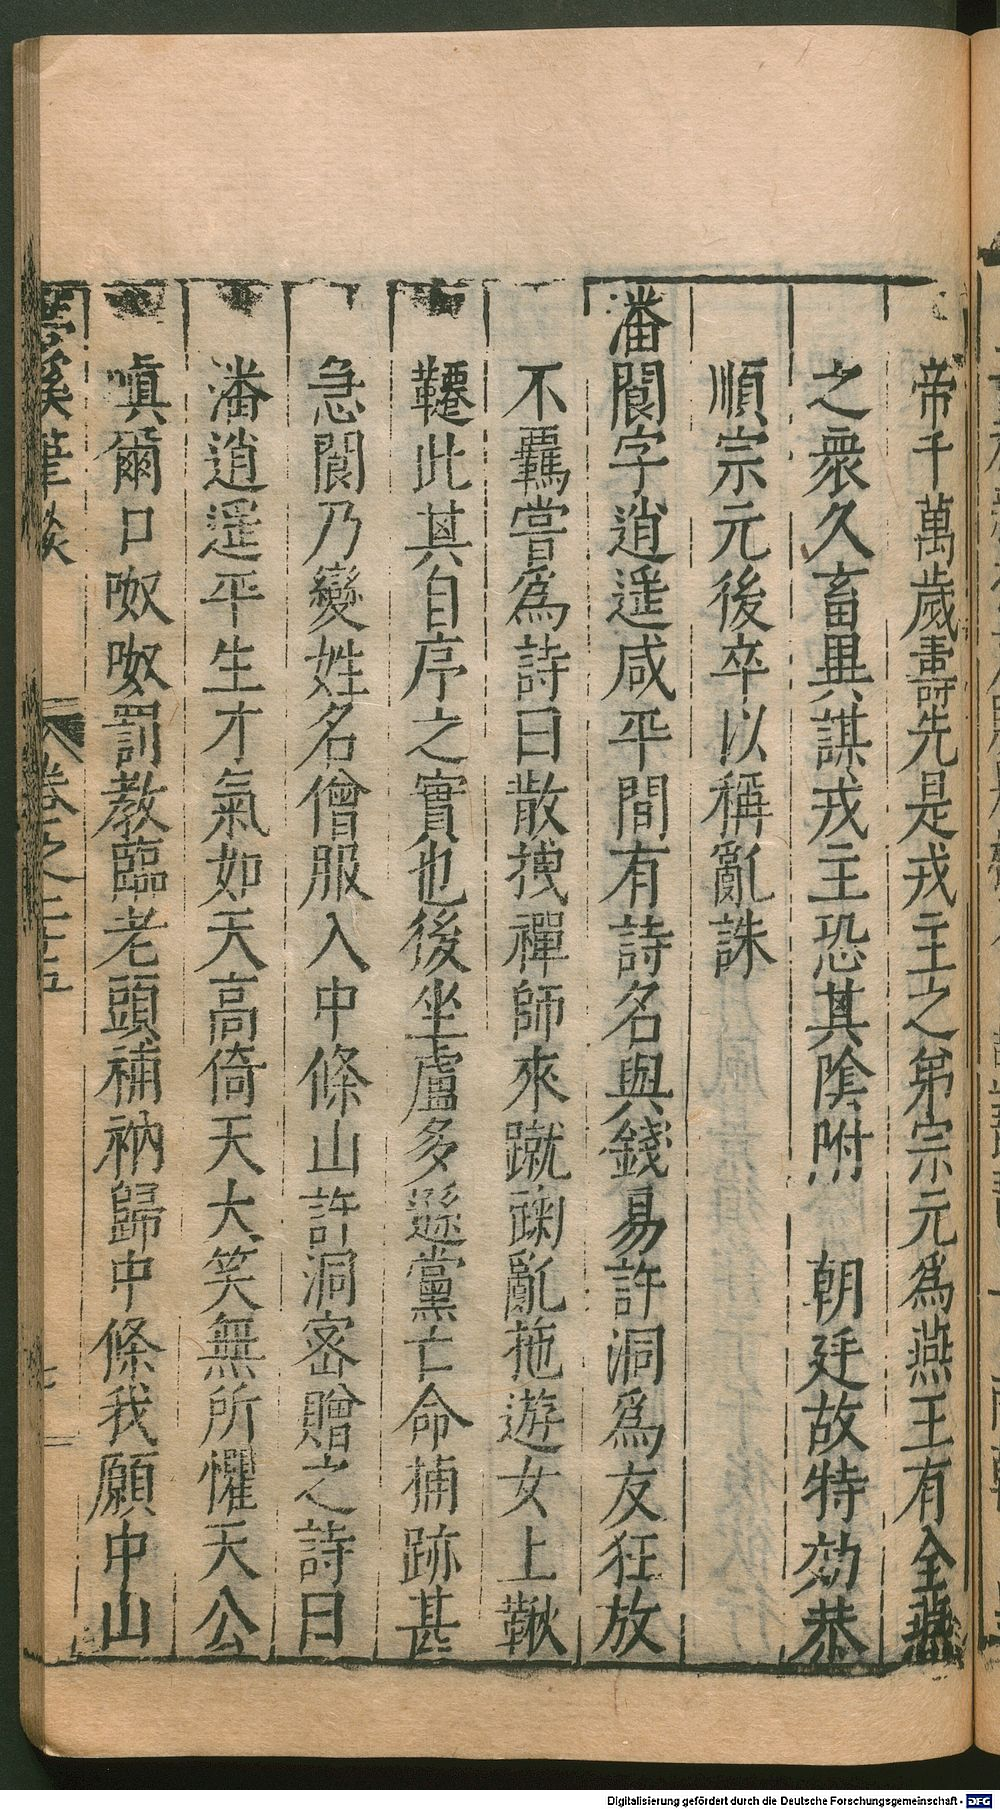 帝千萬歲畫可先是戎主之弟宗元爲燕王有全燕
之衆久畜異謀戎主恐其陰附　朝廷故特効恭
順宗元後卒以稱亂誅
潘閬字逍遥咸平間有詩名與錢易許洞爲友狂放
不羈嘗爲詩曰散拽禪師來蹴踘亂拖遊女上鞦
韆此其自序之實也後坐盧多遜黨亡命捕跡甚
急閬乃變姓名僧服入中條山許洞密贈之詩曰
潘逍遥平生才氣如天高倚天大笑無所懼天公
嗔爾口呶呶罰教臨老頭補衲歸中條我願中山
筆談　卷之二十五　七
Digitalisierung gefördert durch die Deutsche Forschungsgemeinschaft - DFG